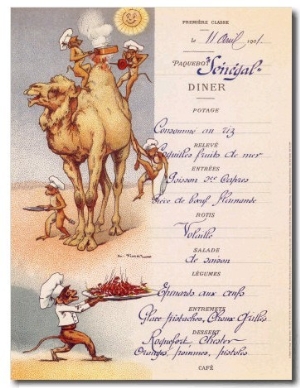 PREMIÈRE CLASSE
le 11 Avril 1901.
PAQUEBOT Sénégal
DINER
POTAGE
Consommé au riz
RELEVÉ
Coquilles fruits de mer
ENTRÉES
Poisson sce Capres
Pièce de bœuf Flamande
ROTIS
Volaille
SALADE
de saison
LÉGUMES
Epinards aux œufs
ENTREMETS
Glace pistaches, Choux Grillés
DESSERT
Roquefort, Chester
Oranges, pommes, pistoles
CAFÉ